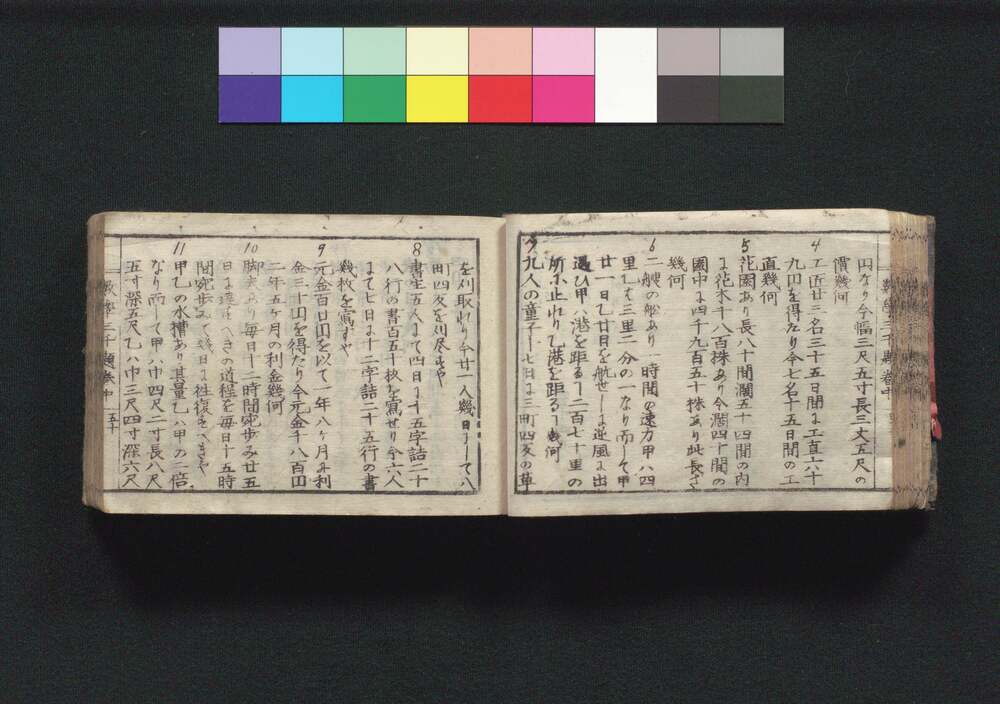 円なり今幅三尺五寸長三丈五尺の
價幾何
4 工匠廿三名三十五日間に工直六十
九円を得たり今七名十五日間の工
直幾何
5 花園あり長八十間濶五十四間の内
に花木千八百株あり今濶四十間の
園中に四千九百五十株あり此長さ
幾何
6 二艘の舩あり一時間の速力甲ハ四
里して三里二分の一なり而して甲
廿一日乙廿日を航せしに逆風に出
遇ひ甲ハ港を距る丁二百七十里の
所に止れり乙港を距る丁幾何
7 九人の童子十七日に三町四反の草
を刈取れり今廿一人幾日にして八
町四反を刈尽すや
8 書生五人にて四日に十五字詰二十
八行の書百五十枚を寫せり今六人
にて七日に十二字詰二十五行の書
幾枚を寫すや
9 元金百口円を以て一年八ヶ月に利
金三十円を得たり今元金千八百円
二年五ヶ月の利金幾何
10 脚夫あり毎日十二時間宛歩み廿五
日に達すへきの道程を毎日十五時
間宛歩みて幾日に往復すへきや
11 甲乙の水槽あり其量乙ハ甲の二倍
なり而して甲ハ巾四尺二寸長八尺
五寸深五尺乙ハ巾三尺四寸深六尺
數學三千題巻中 五十